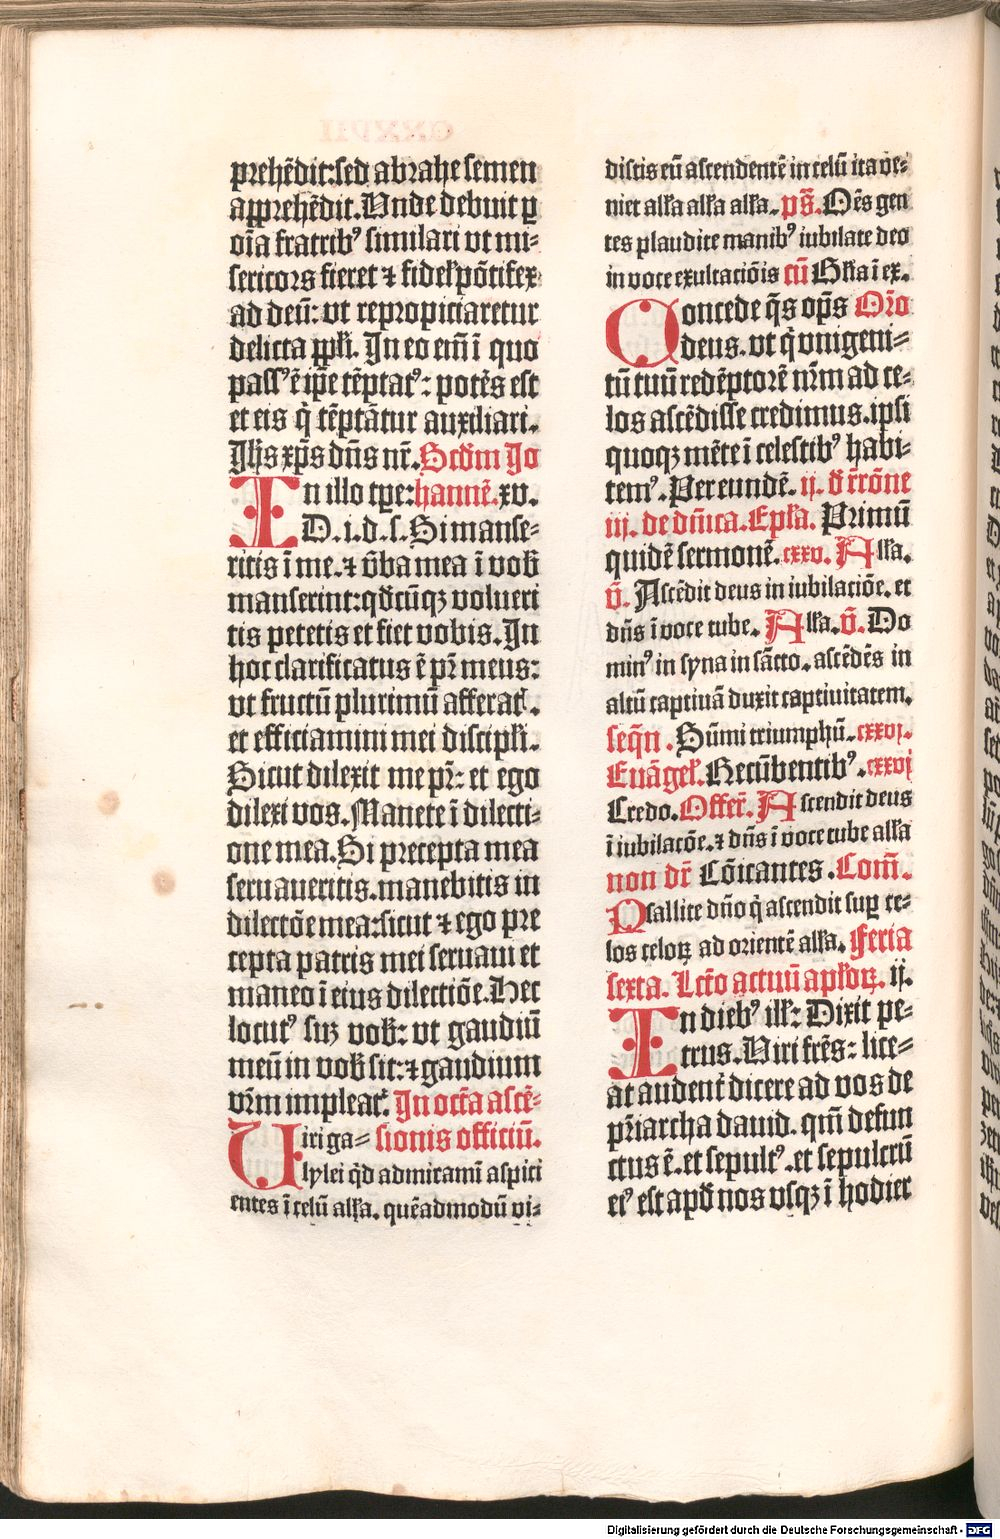 prehēdit: sed abrahe semen
apprehēdit. Unde debuit ꝑ
oīa fratribꝰ simulari vt mi⸗
sericors fieret ⁊ fidel᷒ pōtifex
ad deū: vt repropiciaretur
delicta ppłi. In eo eīn ī quo
passꝰ ē ip̄e tēptatꝰ: potēs est
et eis q̇ tēptātur auxiliari.
Jhs xp̄s dn̄s nr̄. Scd̄m Jo
In illo tp̄e: hannē. xv.
D. i. d. s. Si manse⸗
ritis ī me. ⁊ v̄ba mea ī vob̄
manserint: qd̄cūqꝫ volueri
tis petetis et fiet vobis. In
hoc clarificatus ē pr̄ meus:
vt fructū plurimū afferat᷑.
et efficiamini mei discipłi.
Sicut dilexit me pr̄: et ego
dilexi vos. Manete ī dilecti⸗
one mea. Si precepta mea
seruaueritis. manebitis in
dilectōe mea: sicut ⁊ ego pre
cepta patris mei seruaui et
maneo ī eius dilectiōe. Hec
locutꝰ suꝫ vob̄: vt gaudiū
meū in vob̄ sit: ⁊ gaudium
vr̄m impleat᷑. In octa ascē⸗
Uiri ga⸗ sionis officiū.
lylei qd̓ admiramī aspici
entes ī celū alła. quēadmodū vi⸗
distis eū ascendentē in celū ita ve⸗
niet alła alła alła. ps̄. Oēs gen
tes plaudite manibꝰ iubilate deo
in voce exultaciōis cū Głia ī ex.
Concede q̄s op̄s Oro
deus. vt q̇ vnigeni⸗
tū tuū redēptorē nr̄m ad ce⸗
los ascēdisse credimus. ipsi
quoqꝫ mēte ī celestibꝰ habi
temꝰ. Per eundē. ij. d̄ rr̄one
iij. de dn̄ica. Epła. Primū
quidē sermonē. cxxv. Alła.
v̄. Ascēdit deus in iubilaciōe. et
dn̄s ī voce tube. Alła. v̄. Do
minꝰ in syna in sācto. ascēdēs in
altū captiuā duxit captiuitatem.
seq̄n. Sūmi triumphū. cxxvj.
Euāgel᷒. Recūbentibꝰ. cxxvj
Credo. Offer̄. Ascendit deus
ī iubilacōe. ⁊ dn̄s ī voce tube alła
non dr̄ Cōicantes. Com̄.
Psallite dn̄o q̇ ascendit suꝑ ce⸗
los celoꝝ ad orientē alła. Feria
sexta. Lcto actuū apłoꝝ. ij.
In diebꝰ ill᷒: Dixit pe⸗
trus. Viri fr̄es: lice⸗
at audent᷑ dicere ad vos de
pr̄iarcha dauid. qm̄ defun
ctus ē. et sepultꝰ. et sepulcrū
eiꝰ est apd̄ nos vsqꝫ ī hodier
Digitalisierung gefördert durch die Deutsche Forschungsgemeinschaft - DFG